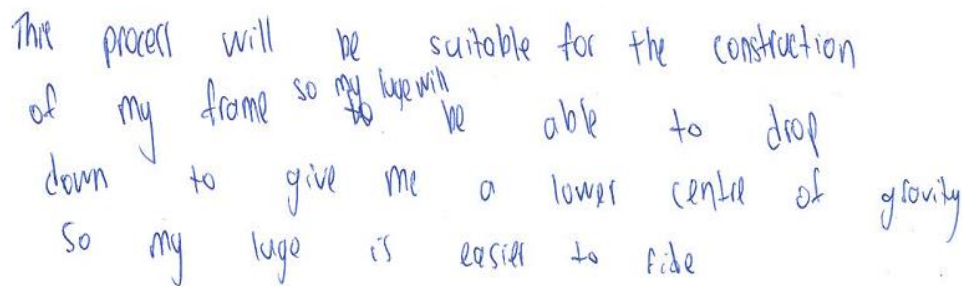 This process will be suitable for the construction
of my frame so my luge will be able to drop
down to give me a lower centre of gravity
so my luge is easier to ride